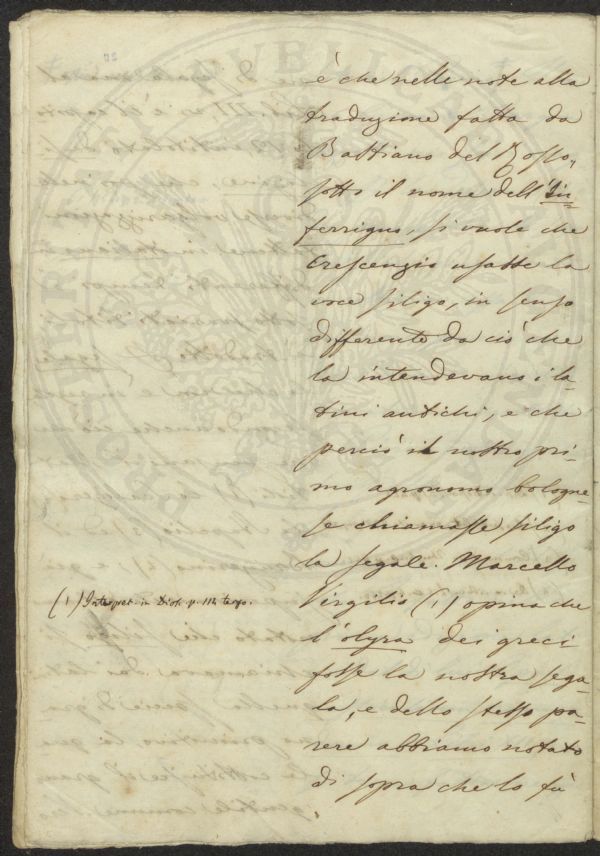 è che nelle note alla
traduzione fatta da
Bastiano del Rosso,
sotto il nome dell'In=
ferrigno, si vuole che
Crescenzio usasse la
voce siligo, in senso
differente da ciò che
la intendevano i la-
tini antichi, e che
perciò il nostro pri-
mo agronomo bologne-
se chiamasse siligo
la segale. Marcello
Virgilio (1) opina che
l'olyra dei greci
fosse la nostra sega-
la, e dello stesso pa-
rere abbiamo notato
di sopra che lo fù
(1) Interpret. in Diosc. p. 112. tergo.